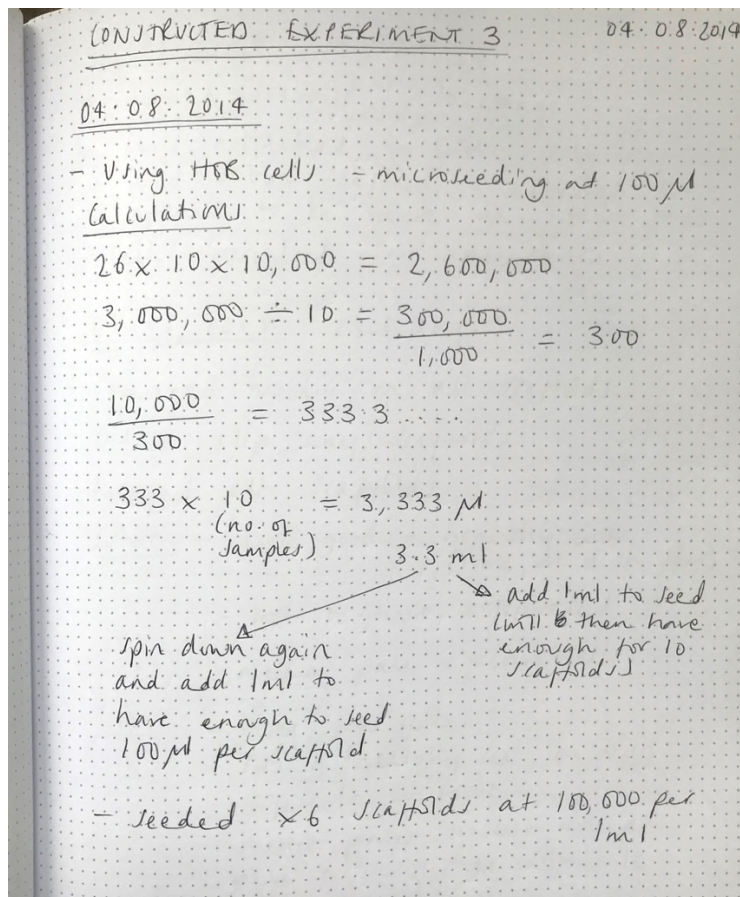 CONSTRUCTED EXPERIMENT 3
04.08.2014
04.08.2014
- Using HOB cells - microseeding at 100 µl
Calculations
26 x 10 x 10,000 = 2,600,000
3,000,000 ÷ 10 = 300,000 / 1,000 = 300
10,000 / 300 = 333.3.....
333 x 10 = 3,333 µl
(no. of
samples)
3.3 ml
add 1ml to seed
(will then have
enough for 10
scaffolds)
spin down again
and add 1ml to
have enough to seed
100 µl per scaffold
- seeded x6 scaffolds at 100,000 per
1ml